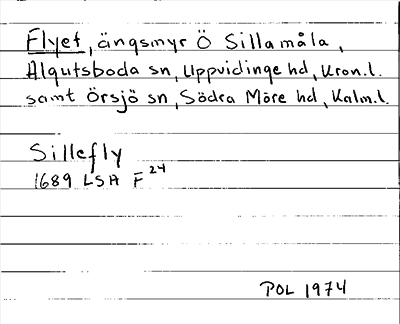 Flyet, ängsmyr Ö Sillamåla,
Algutsboda sn, Uppvidinge hd, Kron.l.
samt Örsjö sn, Södra Möre hd, Kalm.l.
Sillefly
1689 LSA F 24
POL 1974